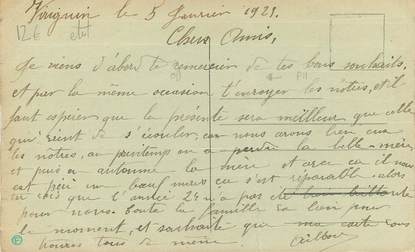 Viriguin le 5 Janvier 1921.
12 €
Chers Amis,
Je viens d'abord te remercier de tes bons souhaits,
et par la même occasion t'envoyer les nôtres, et il
faut espérer que la présente sera meilleur que celle
qui vient de s'écouler, car nous avons bien eu
les nôtres, au printemps on a perdu la belle-mère
et puis en automne la mère et avec ça il nous
est péri un bœuf mais ça s'est réparable alors
tu vois que l'année 20 n'a pas été
pour nous. Toute la famille va bien pour
le moment, et souhaite que ma carte vous
trouve tous de même.